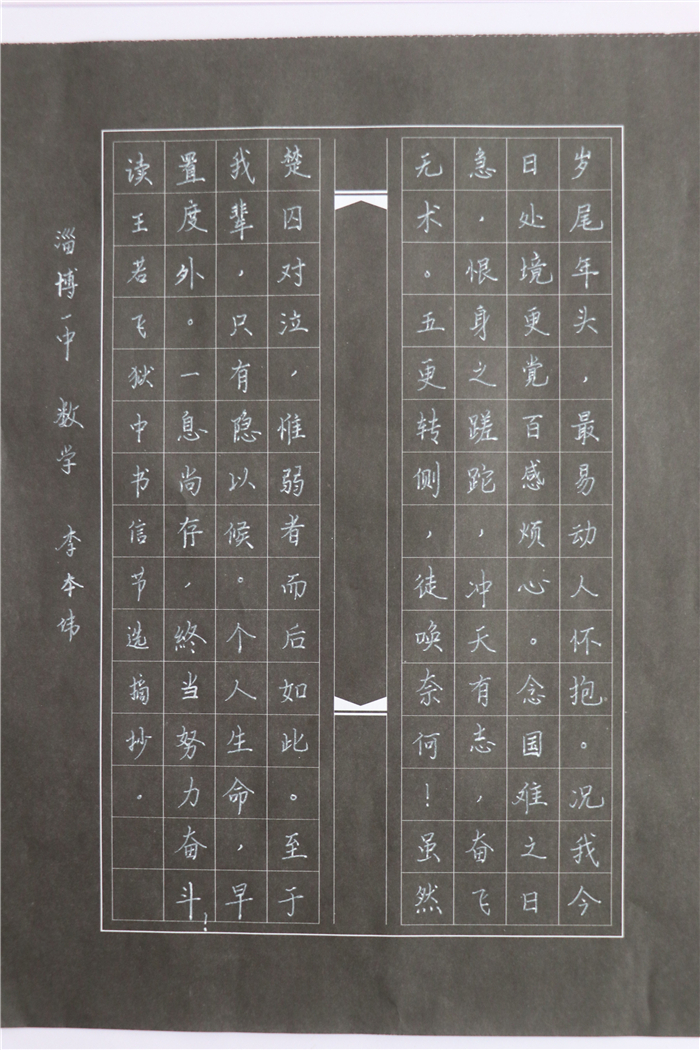 岁尾年头，最易动人怀抱。况我今
日处境更觉百感烦心。念国难之日
急，恨身之蹉跎，冲天有志，奋飞
无术。五更转侧，徒唤奈何！虽然
楚囚对泣，惟弱者而后如此。至于
我辈，只有隐以候。个人生命，早
置度外。一息尚存，終当努力奋斗！
读王若飞狱中书信节选摘抄。
淄博一中 数学 李本